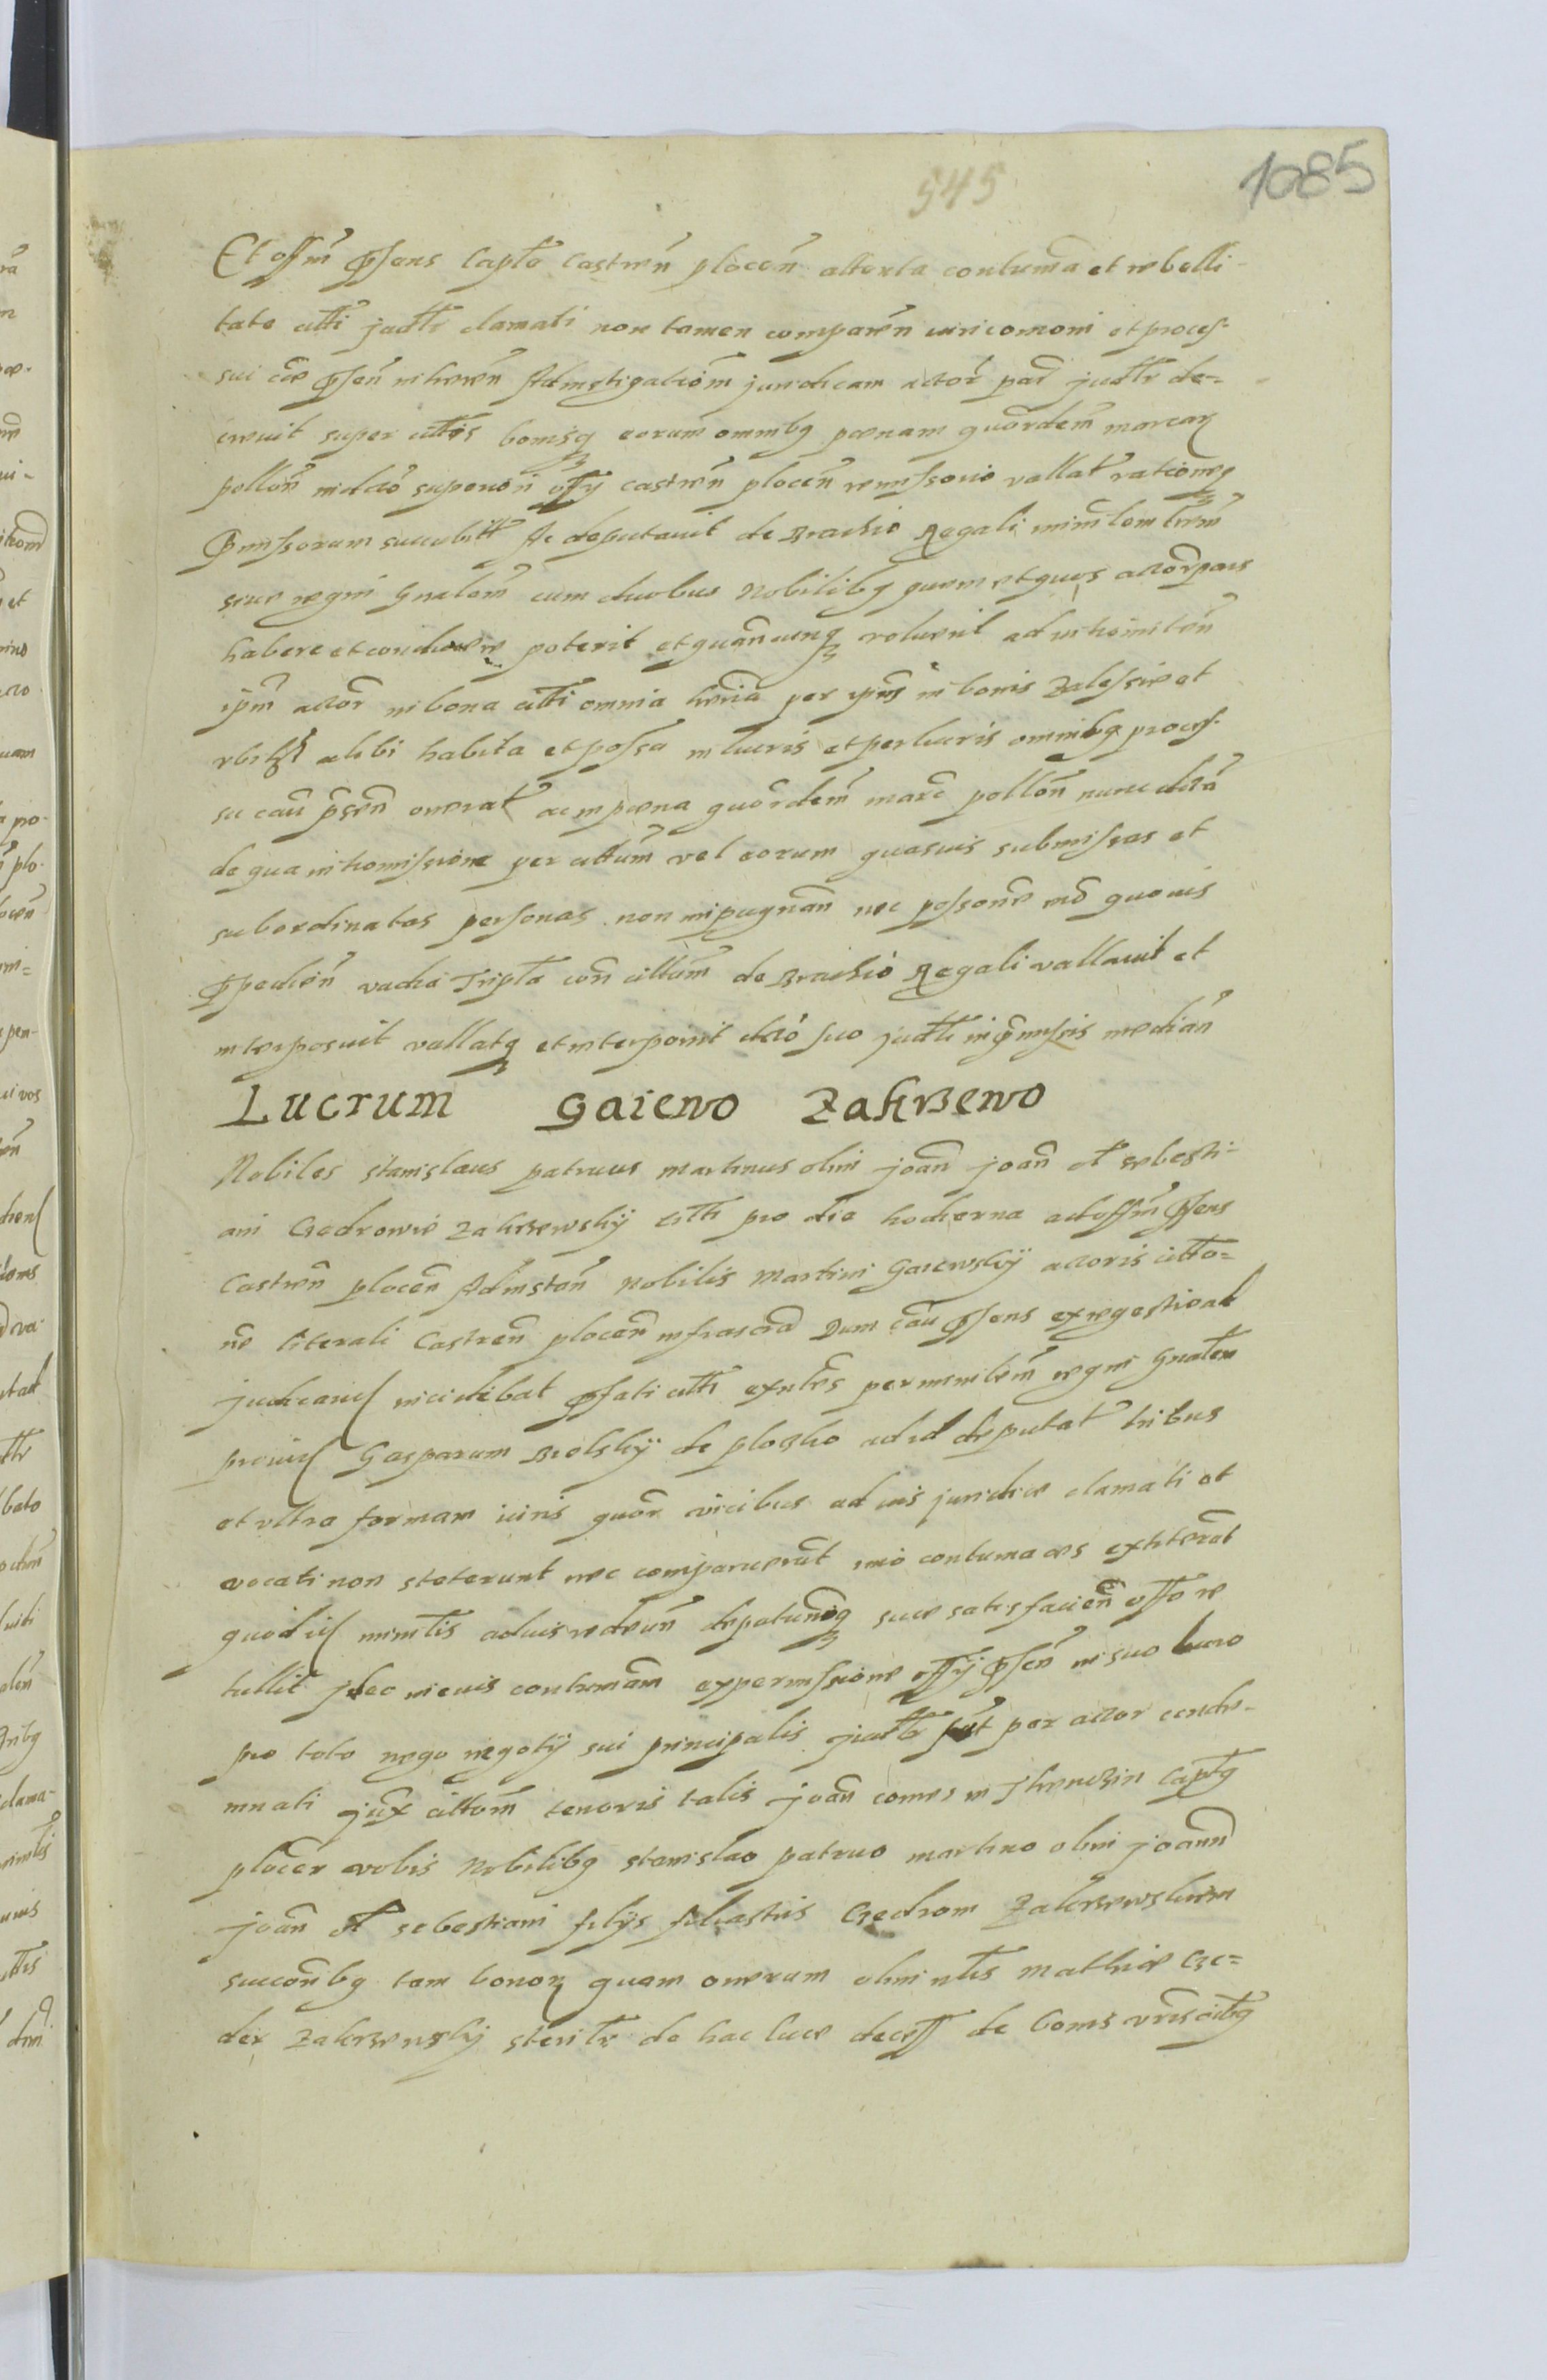 545 1085
Et offm̃ p̃sens Captlẽ Castren̄ plocen̄ attenta contuma et rebelli-
tate citti judtr clamati non tamen comparen̄ iuri comoni et proces-
sui cãe p̃sen̄ inheren̄ Admstigationem juridicam actor̃ par̃ judtr de-
creuit super cittis bonisq eorum omnibq poenam quordem̃ marcar
pollon̄ in dicto superiori offy castren̄ plocen̄ remissorio vallat̃ rationeq
p̃missorum succubitt Ac deputauit de Brachio Regali minist̃lem trm̃
siue regni Gnalem̃ cum duobus Nobilibq quem et quos actor pars
habere et conducere poterit et quancunq voluerit ad intromitten̄
ipm̃ actor̃ in bona citti omnia hr̃ia per ipm̃ in bonis Zalessie et
vbilibt alibi habita et possa in lucris et perlucris omnibq proces-
su cau p̃sen̄ onerat ac in poena quordem̃ marc̃ pollon̄ nunc dictã
de qua intromissione per citt̃um̃ vel eorum quasuis submissas et
subordinatas personas non impugnan̄ nec possone mõ quouis
p̃pedien̄ vadia Triplã con̄ citt̃um̃ de Brachio Regali vallauit et
interposuit vallatq et interponit dicto suo judtli in p̃missis median̄
Lucrum Gaiewo Zakrzewo
Nobiles stanislaus patruus martinus olim joan̄ joan̄ et sebesti-
ani Czedrowie Zakrzewsky citti pro die hodierna ad offm̃ p̃sens
Castren̄ plocen̄ Ad instan̄ Nobilis Martini Gaiewsky actoris citto-
ne literali Castren̄ plocen̄ infrascrã Dum cãu p̃sens ex regestro ad
judicand incidebat p̃fati citti exntes per minlem̃ regni Gnalem
prouid Gasparum Bielsky de ploczko ad id deputat̃ tribus
et vltra formam iuris quor̃ vicibus ad ius juridice clamati et
vocati non steterunt nec comparuerũt imo contumaces extiterũt
quod id minitlis ad ius redeun̄ deputationiq sue satisfacien̄ offo re
tullit Ideo in euis contumam̃ ex permissione offy p̃sen̄ in suo lucro
pro toto nego negoty sui principalis judtlr sũt per actor conde-
mnati jux̃ cittom̃ tenoris talis joan̄ comes in Threnczin Captq
plocen̄ vobis Nobilibq stanislao patruo martino olim joann̄
joan̄ et sebestiani filys filiastris Czedrom Zakrzewskiem
succorib̃q tam bonor quam onerum olim ntlis mathie Cze-
der Zakrzewsky sterilr̃ de hac luce decess de bonis vr̃is citibq